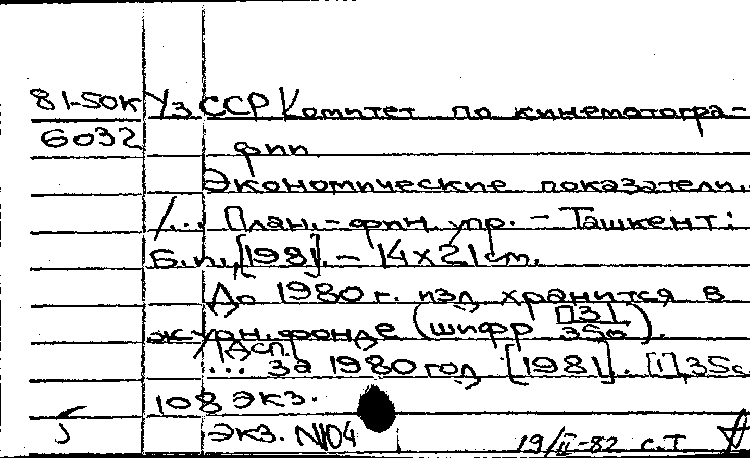 81-50к Уз ССР Комитет по кинематогра-
6032 фии
Экономические показатели.
/... План.-фин. упр. - Ташкент:
Б.и., [1981]. - 14х21 см.
До 1980 г. изд. хранится в
журн. фонде (шифр П31/35а).
/ДСП/
... за 1980 год [1981]. [1], 35с
108 экз.
Экз. №104
19/II-82 с.т